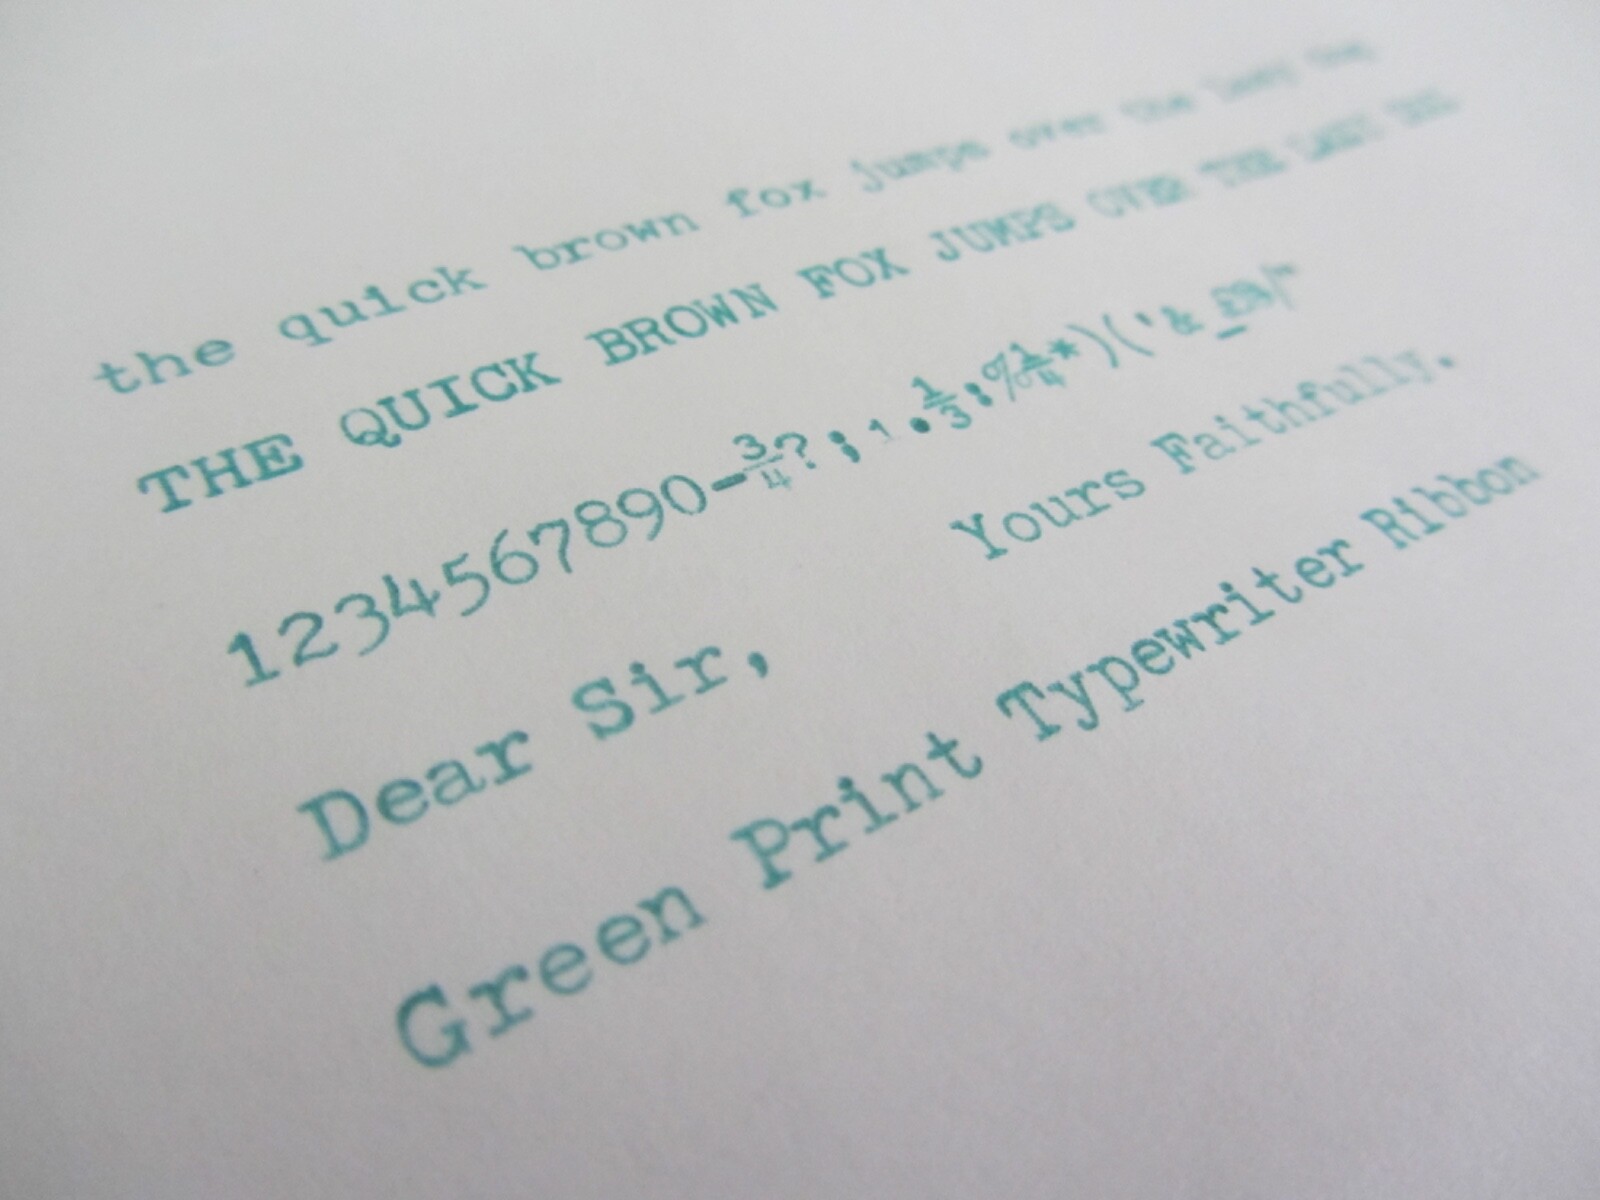 the quick brown fox jumps over the lazy dog
THE QUICK BROWN FOX JUMPS OVER THE LAZY DOG
1234567890-¾?;,.⅓:%¼*)('&_£
Dear Sir,
Yours Faithfully.
Green Print Typewriter Ribbon